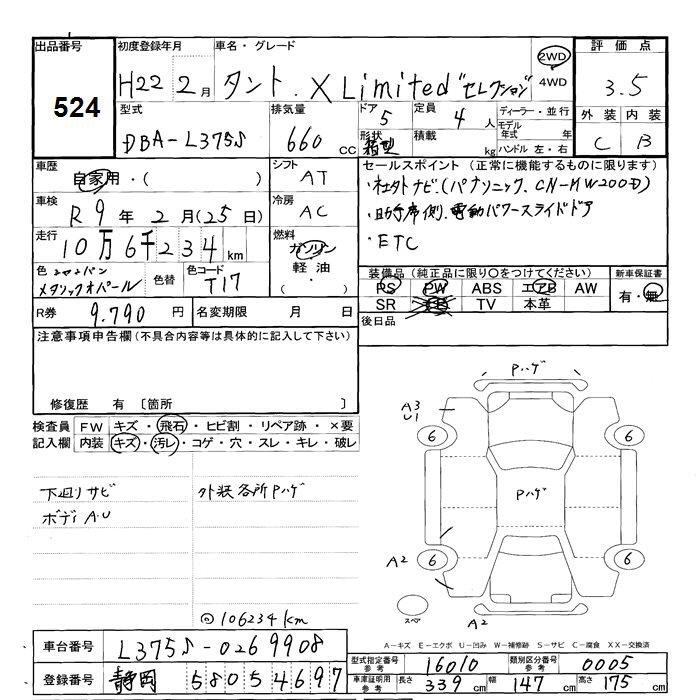 出品番号 初度登録年月 車名・グレード 2WD 4WD 評価点
524 H22 2月 タント. X Limited "セレクション" 3.5
型式 排気量 ドア 定員 ディーラー・並行 外装 内装
DBA-L375S 660 cc 5 4人 モデル年式 年 C B
形状 箱型 積載 kg ハンドル 左・右
車歴 自家用・( ) シフト AT
セールスポイント (正常に機能するものに限ります)
・社外ナビ.(パナソニック. CN-HW200D)
・助手席側.電動パワースライドドア
・ETC
車検 R9年 2月(25日) 冷房 AC
走行 10万6千234km 燃料 ガソリン 軽油
色 シャンパンメタリックオパール 色替 色コード T17
装備品 (純正品に限り○をつけてください) 新車保証書
PS PW ABS エアB AW 有・無
SR TV 本革
R券 9.790円 名変期限 月 日 後日品
注意事項申告欄(不具合内容等は具体的に記入して下さい)
修復歴 有 〔箇所 〕
検査員 FW キズ・飛石・ヒビ割・リペア跡・×要
記入欄 内装 キズ・汚レ・コゲ・穴・スレ・キレ・破レ
下廻リサビ 外装各所Pハゲ
ボディA.U
◎106234km
Pハゲ
A3
U1
6 6
Pハゲ
A2 6 6
スペア A2
A-キズ E-エクボ U-凹み W-補修跡 S-サビ C-腐食 XX-交換済
車台番号 L375S-0269908
型式指定番号 参考 16010 類別区分番号 参考 0005
登録番号 静岡 580 5 4697
車庫証明用 参考 長さ 339cm 幅 147cm 高さ 175cm